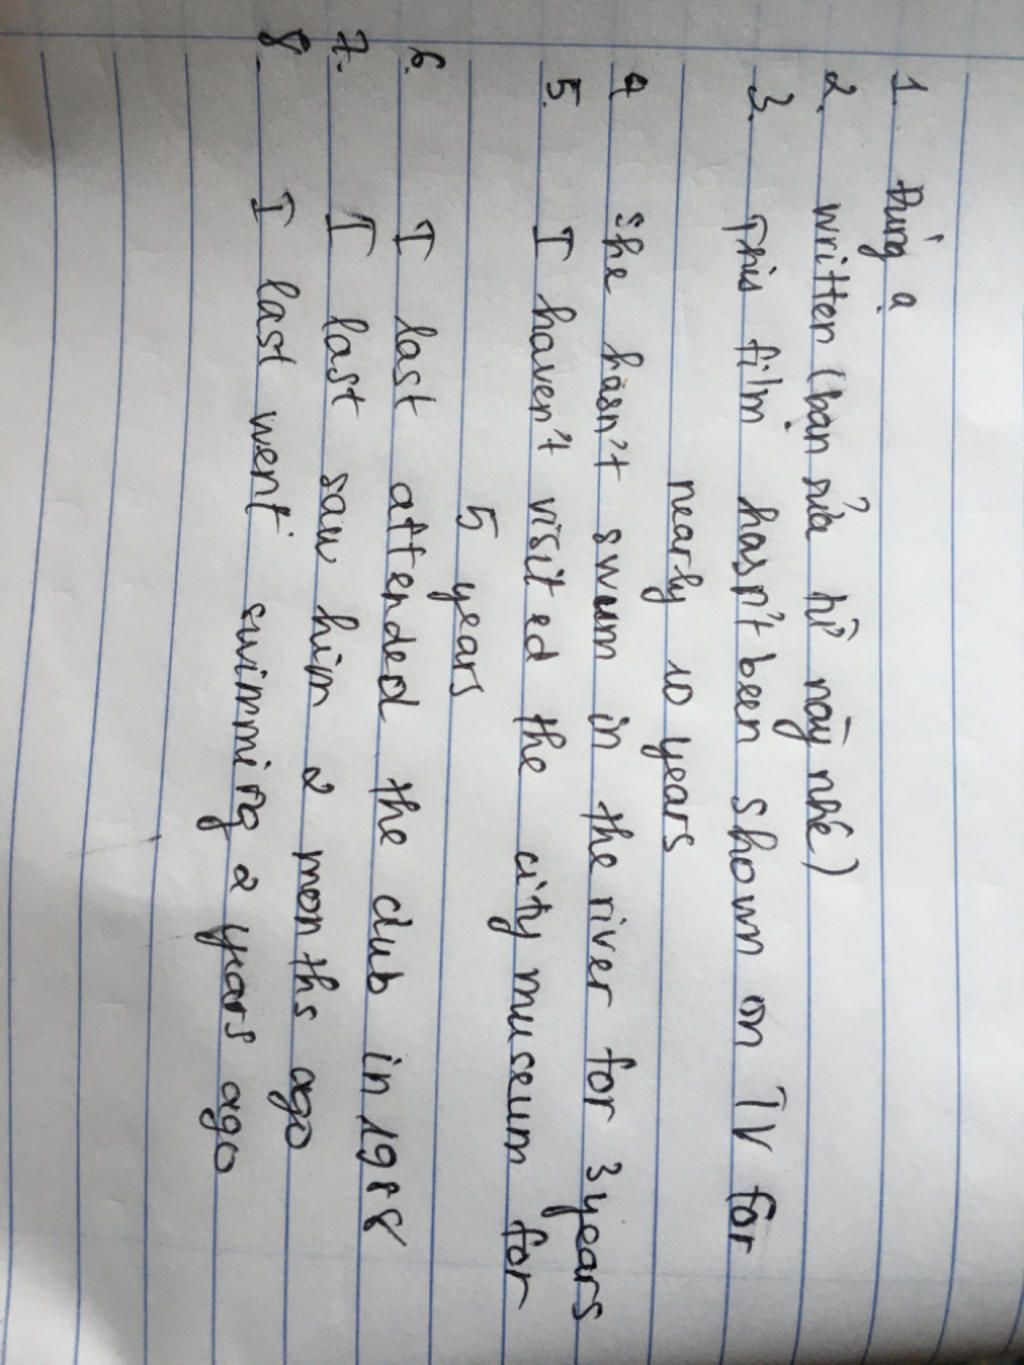 1. Đúng ạ
2. written (bạn sửa hĩ này nhé)
3. This film hasn't been shown on TV for
nearly 10 years
4 she hasn't swum in the river for 3 years
5. I haven't visited the city museum for
5 years
6. I last attended the club in 1988
7. I last saw him 2 months ago
8. I last went swimming 2 years ago